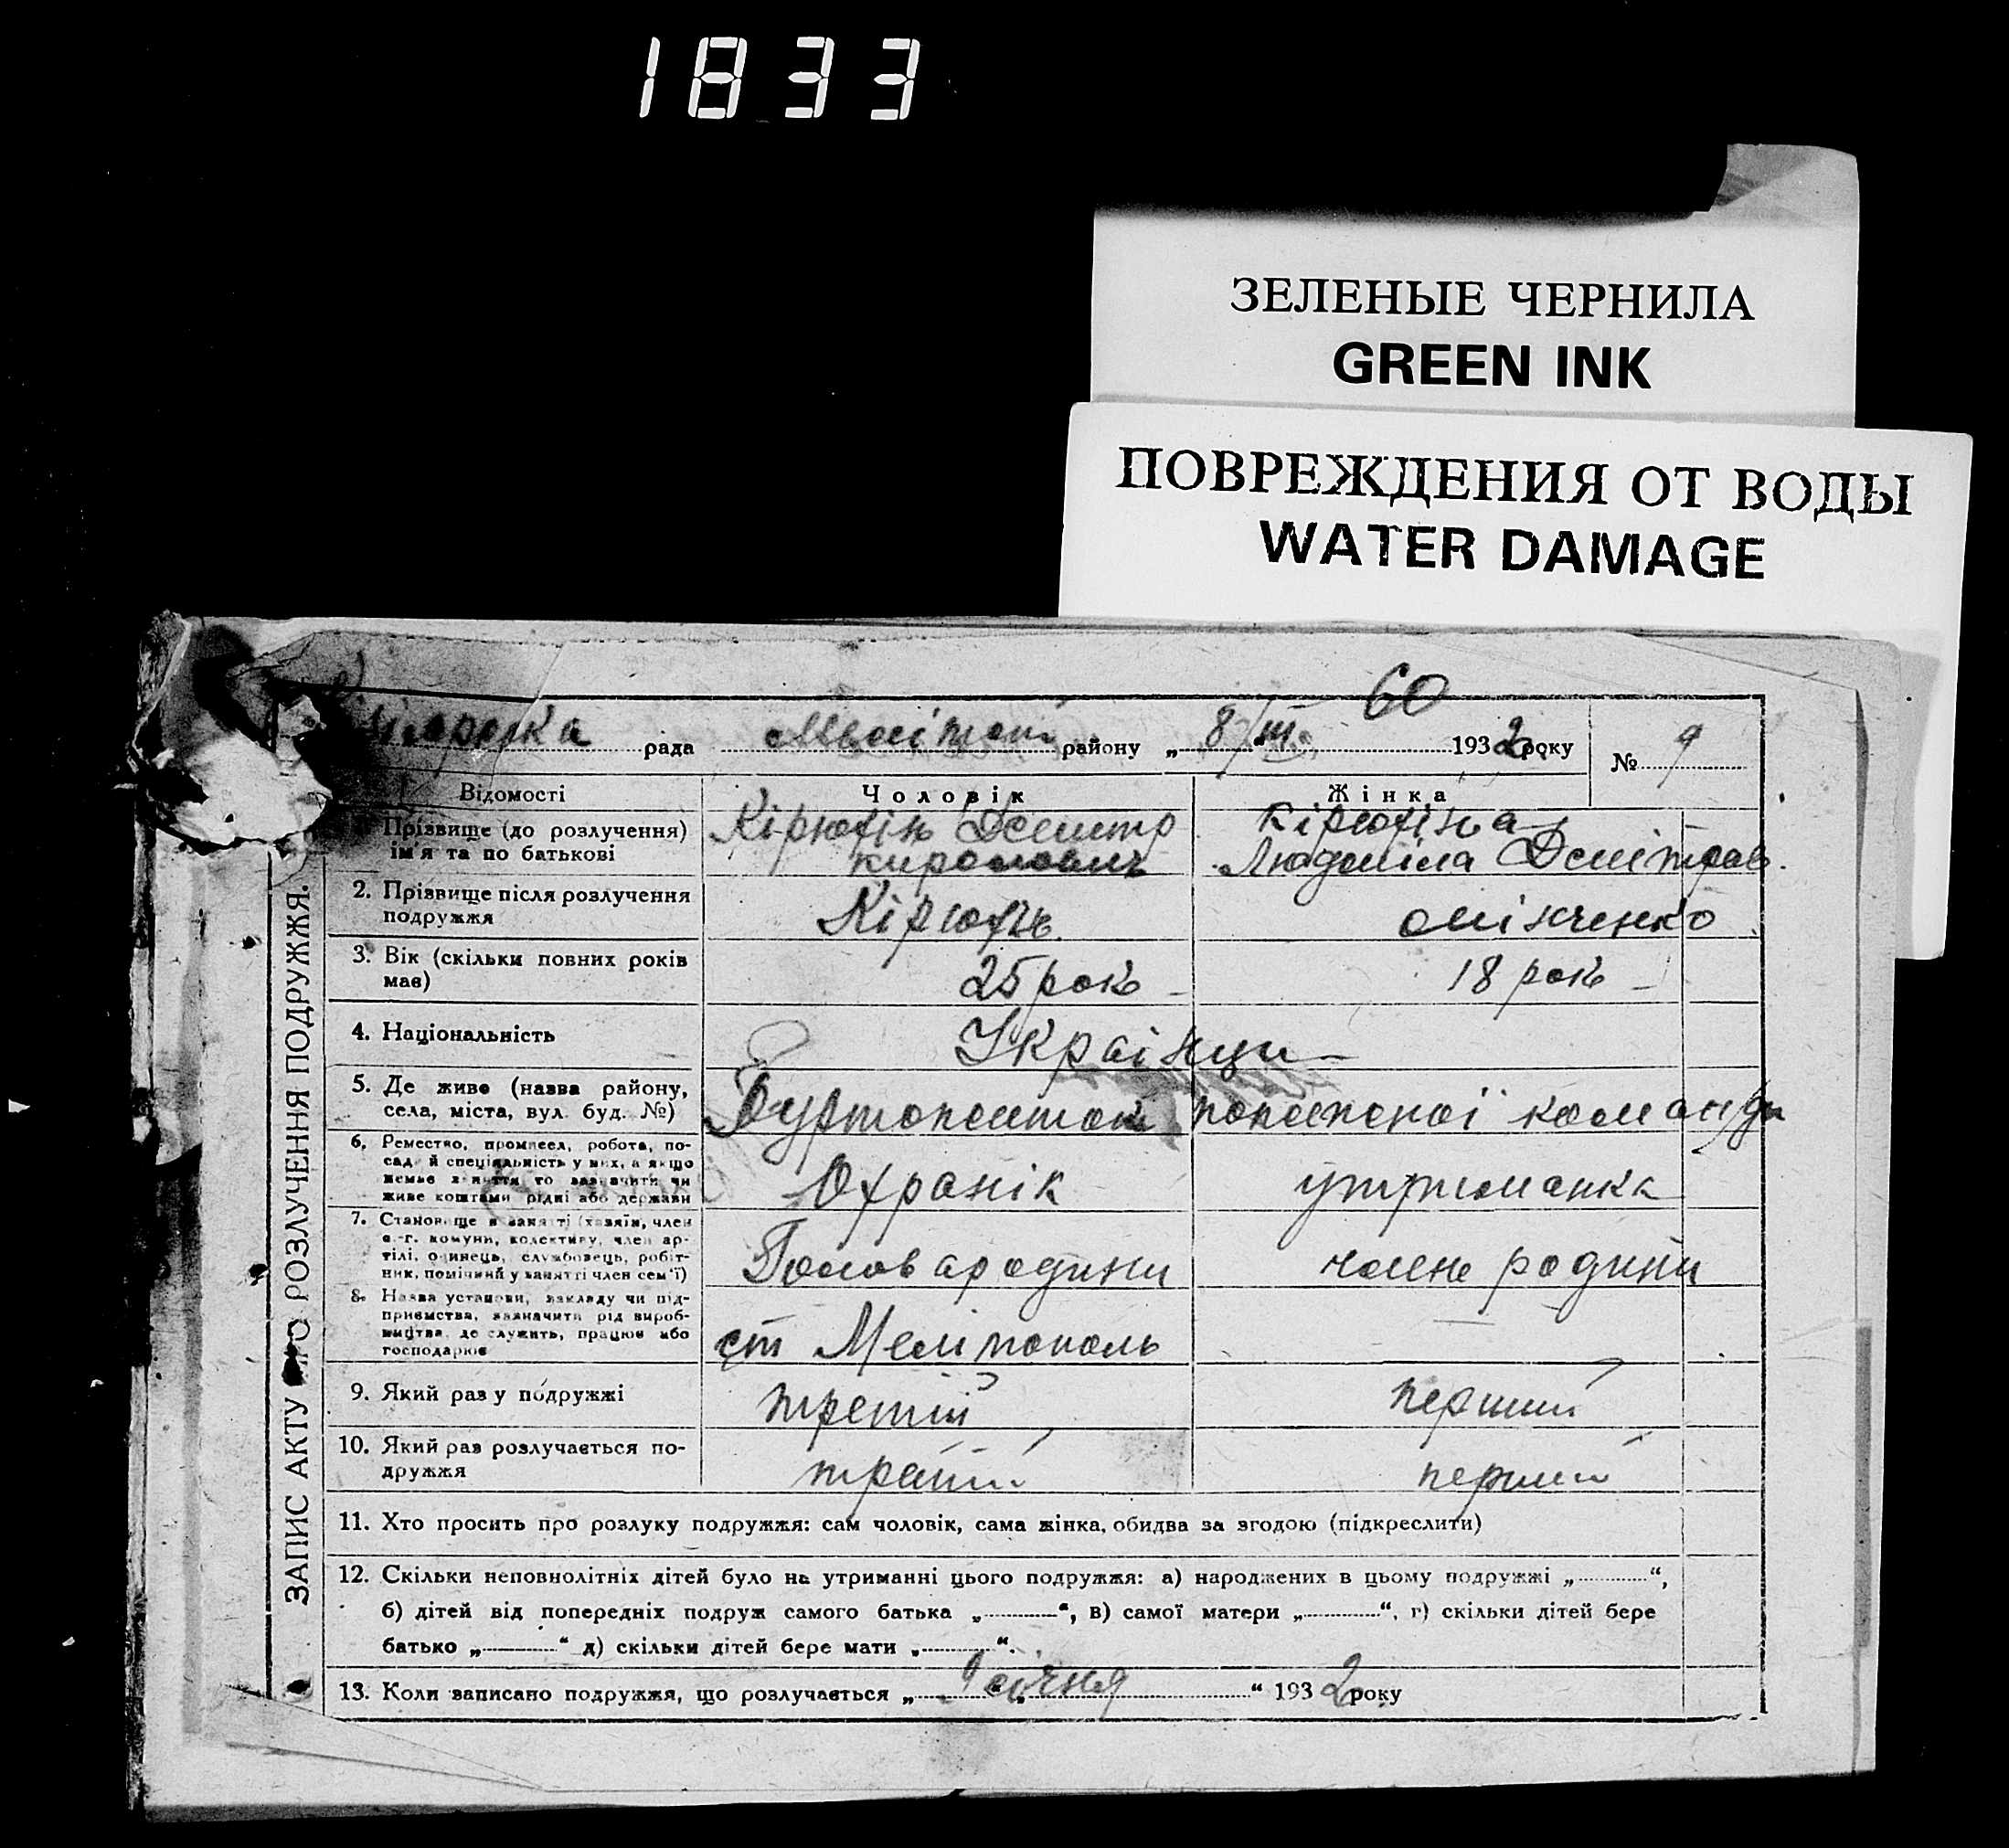 1833
ЗЕЛЕНЫЕ ЧЕРНИЛА
GREEN INK
ПОВРЕЖДЕНИЯ ОТ ВОДЫ
WATER DAMAGE
60
рада Мелітоп району „ 8/III 1932 року № 9
Відомості Чоловік Жінка
Прізвище (до розлучення) Кірюхін Дмитр Кірюхіна
ім'я та по батькові Людміла Дмітров.
2. Прізвище після розлучення Кірюхін
подружжя Омінченко
3. Вік (скільки повних років 25 рок 18 рок
має)
4. Національність Українци
5. Де живе (назва району,
села, міста, вул. буд. №) Гуртожиток пожежної команди
6. Ремество, промисел, робота, по-
сада й спеціяльність у них, а якщо Охранік утриманка
немає заняття то зазначити чи
живе коштами рідні або держави
7. Становище в занятті (хазяїн, член
с.-г. комуни, колективу, член ар-
тілі, одинець, службовець, робіт- Голова родини член родини
ник, помічний у занятті член сем'ї)
8. Назва установи, закладу чи під-
приємства, зазначити рід вироб-
ництва, де служить, працює або ст Мелітополь —
господарює
9. Який раз у подружжі третій перший
10. Який раз розлучається по- третій перший
дружжя
11. Хто просить про розлуку подружжя: сам чоловік, сама жінка, обидва за згодою (підкреслити)
12. Скільки неповнолітніх дітей було на утриманні цього подружжя: а) народжених в цьому подружжі „ “,
б) дітей від попередніх подруж самого батька „ “, в) самої матери „ “, г) скільки дітей бере
батько „ “ д) скільки дітей бере мати „ “.
13. Коли записано подружжя, що розлучається „ 9 січня “ 1932 року
ЗАПИС АКТУ ПРО РОЗЛУЧЕННЯ ПОДРУЖЖЯ.